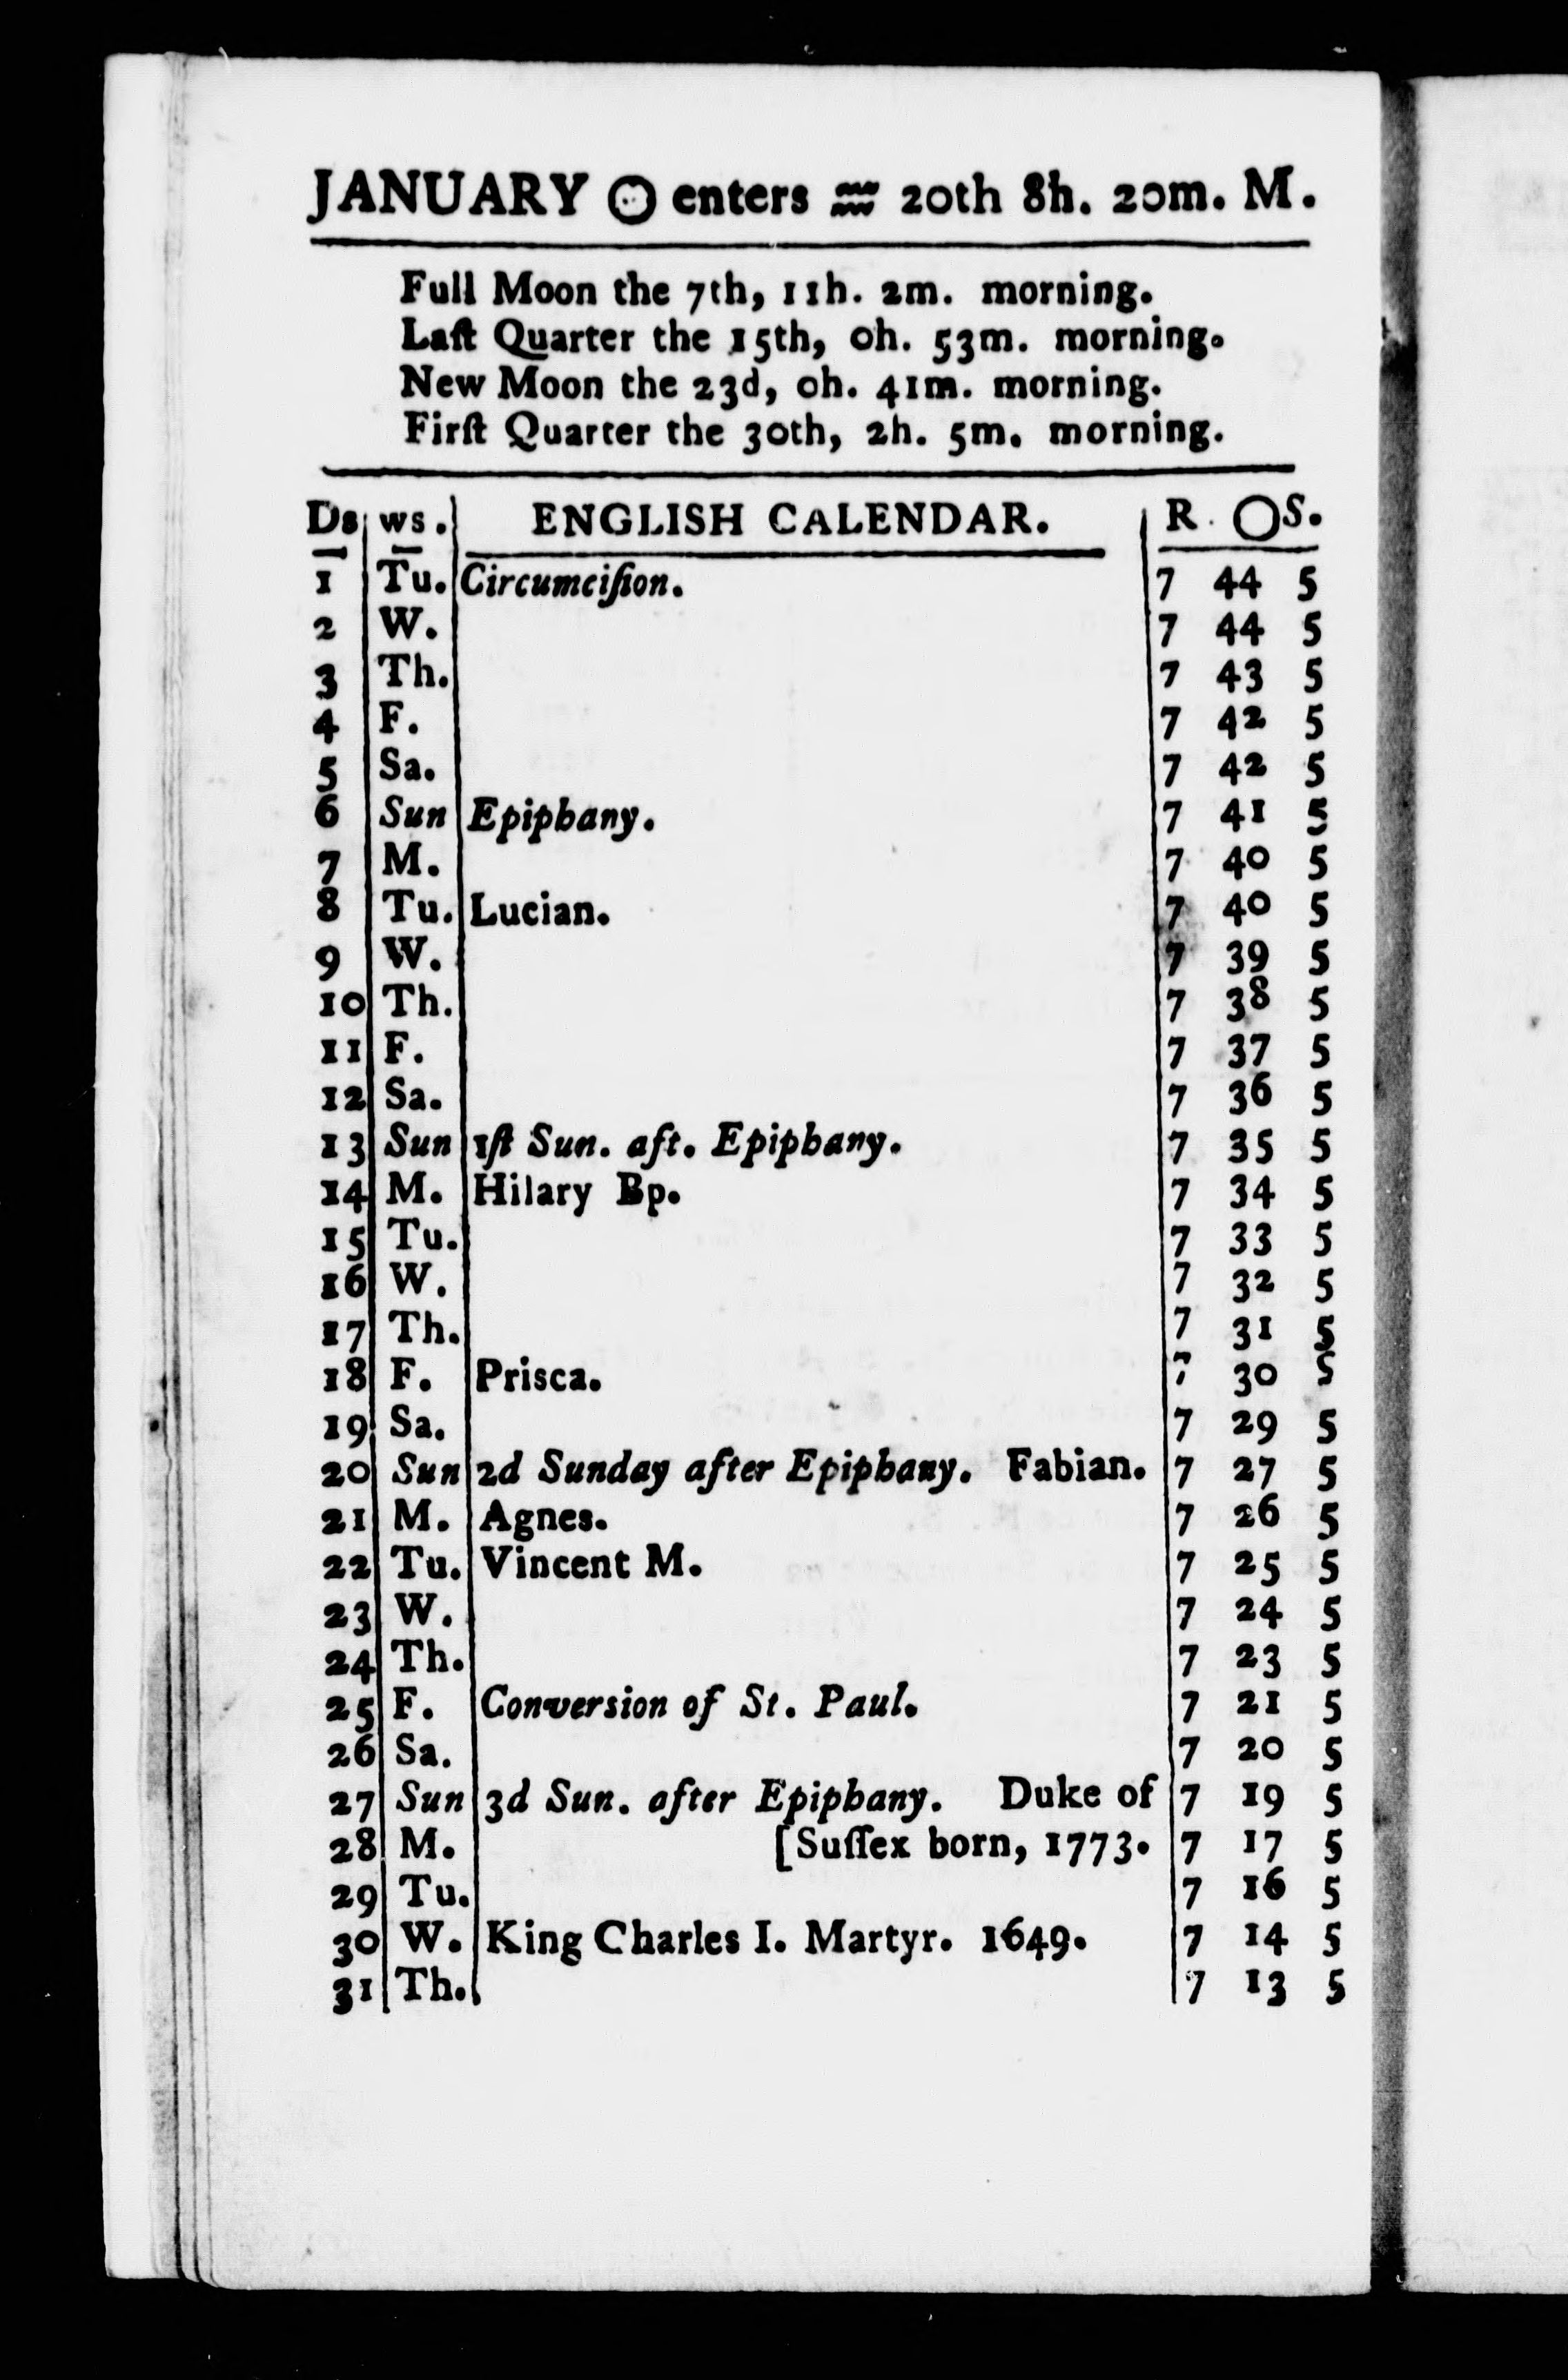 JANUARY ☉ enters ♒ 20th 8h. 20m. M.
Full Moon the 7th, 11h. 2m. morning.
Laſt Quarter the 15th, 0h. 53m. morning.
New Moon the 23d, 0h. 41m. morning.
Firſt Quarter the 30th, 2h. 5m. morning.
Ds ws. ENGLISH CALENDAR. R. ○S.
1 Tu. Circumciſion. 7 44 5
2 W. 7 44 5
3 Th. 7 43 5
4 F. 7 42 5
5 Sa. 7 42 5
6 Sun Epiphany. 7 41 5
7 M. 7 40 5
8 Tu. Lucian. 7 40 5
9 W. 7 39 5
10 Th. 7 38 5
11 F. 7 37 5
12 Sa. 7 36 5
13 Sun 1ſt Sun. aft. Epiphany. 7 35 5
14 M. Hilary Bp. 7 34 5
15 Tu. 7 33 5
16 W. 7 32 5
17 Th. 7 31 5
18 F. Prisca. 7 30 5
19 Sa. 7 29 5
20 Sun 2d Sunday after Epiphany. Fabian. 7 27 5
21 M. Agnes. 7 26 5
22 Tu. Vincent M. 7 25 5
23 W. 7 24 5
24 Th. 7 23 5
25 F. Conversion of St. Paul. 7 21 5
26 Sa. 7 20 5
27 Sun 3d Sun. after Epiphany. Duke of 7 19 5
28 M. [Suſſex born, 1773. 7 17 5
29 Tu. 7 16 5
30 W. King Charles I. Martyr. 1649. 7 14 5
31 Th. 7 13 5